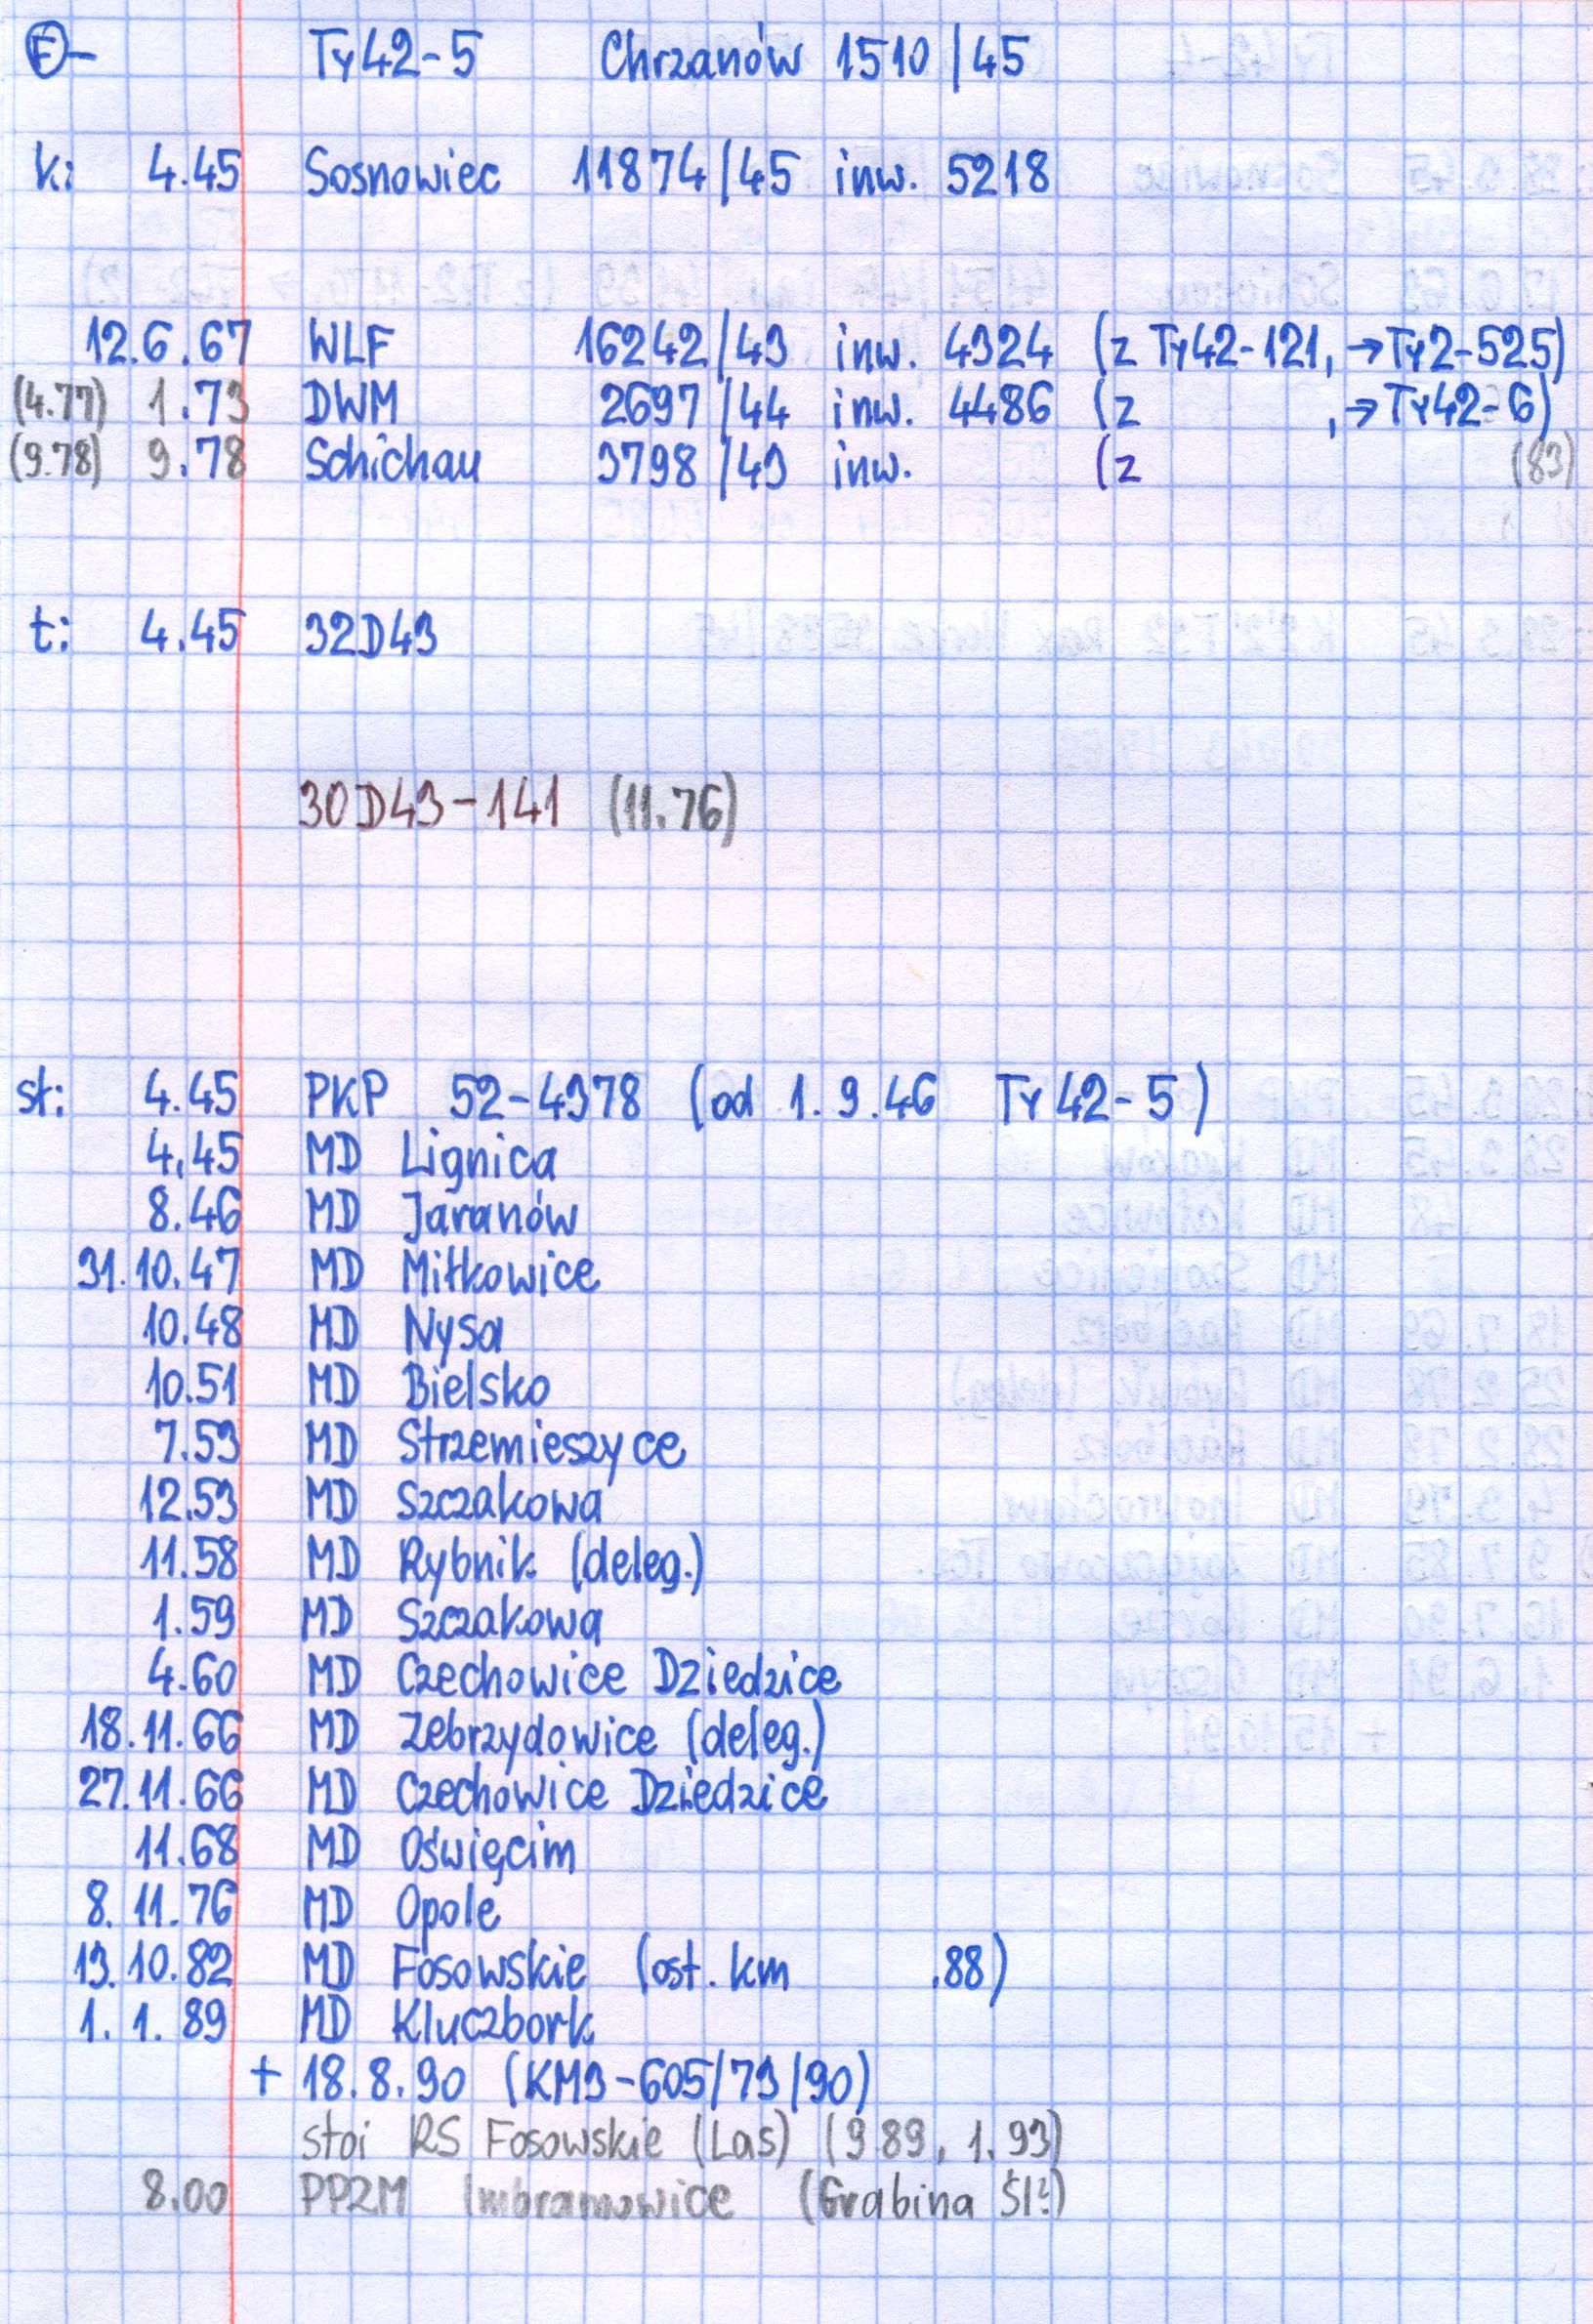 E- Ty42-5 Chrzanów 1510/45
k: 4.45 Sosnowiec 11874/45 inw. 5218
12.6.67 WLF 16242/43 inw. 4324 (z Ty42-121, →Ty2-525)
(4.77) 1.73 DWM 2697/44 inw. 4486 (z , →Ty42-6)
(9.78) 9.78 Schichau 3798/43 inw. (z (83)
t: 4.45 32D43
30D43-141 (11.76)
st: 4.45 PKP 52-4378 (od 1.9.46 Ty42-5)
4.45 MD Lignica
8.46 MD Jaranów
31.10.47 MD Miłkowice
10.48 MD Nysa
10.51 MD Bielsko
7.53 MD Strzemieszyce
12.53 MD Szczakowa
11.58 MD Rybnik (deleg.)
1.59 MD Szczakowa
4.60 MD Czechowice Dziedzice
18.11.66 MD Zebrzydowice (deleg.)
27.11.66 MD Czechowice Dziedzice
11.68 MD Oświęcim
8.11.76 MD Opole
13.10.82 MD Fosowskie (ost. km .88)
1.1.89 MD Kluczbork
+ 18.8.90 (KM3-605/73/90)
stoi RS Fosowskie (Las) (9 89, 1.93)
8.00 Imbramowice (Grabina Śl?)